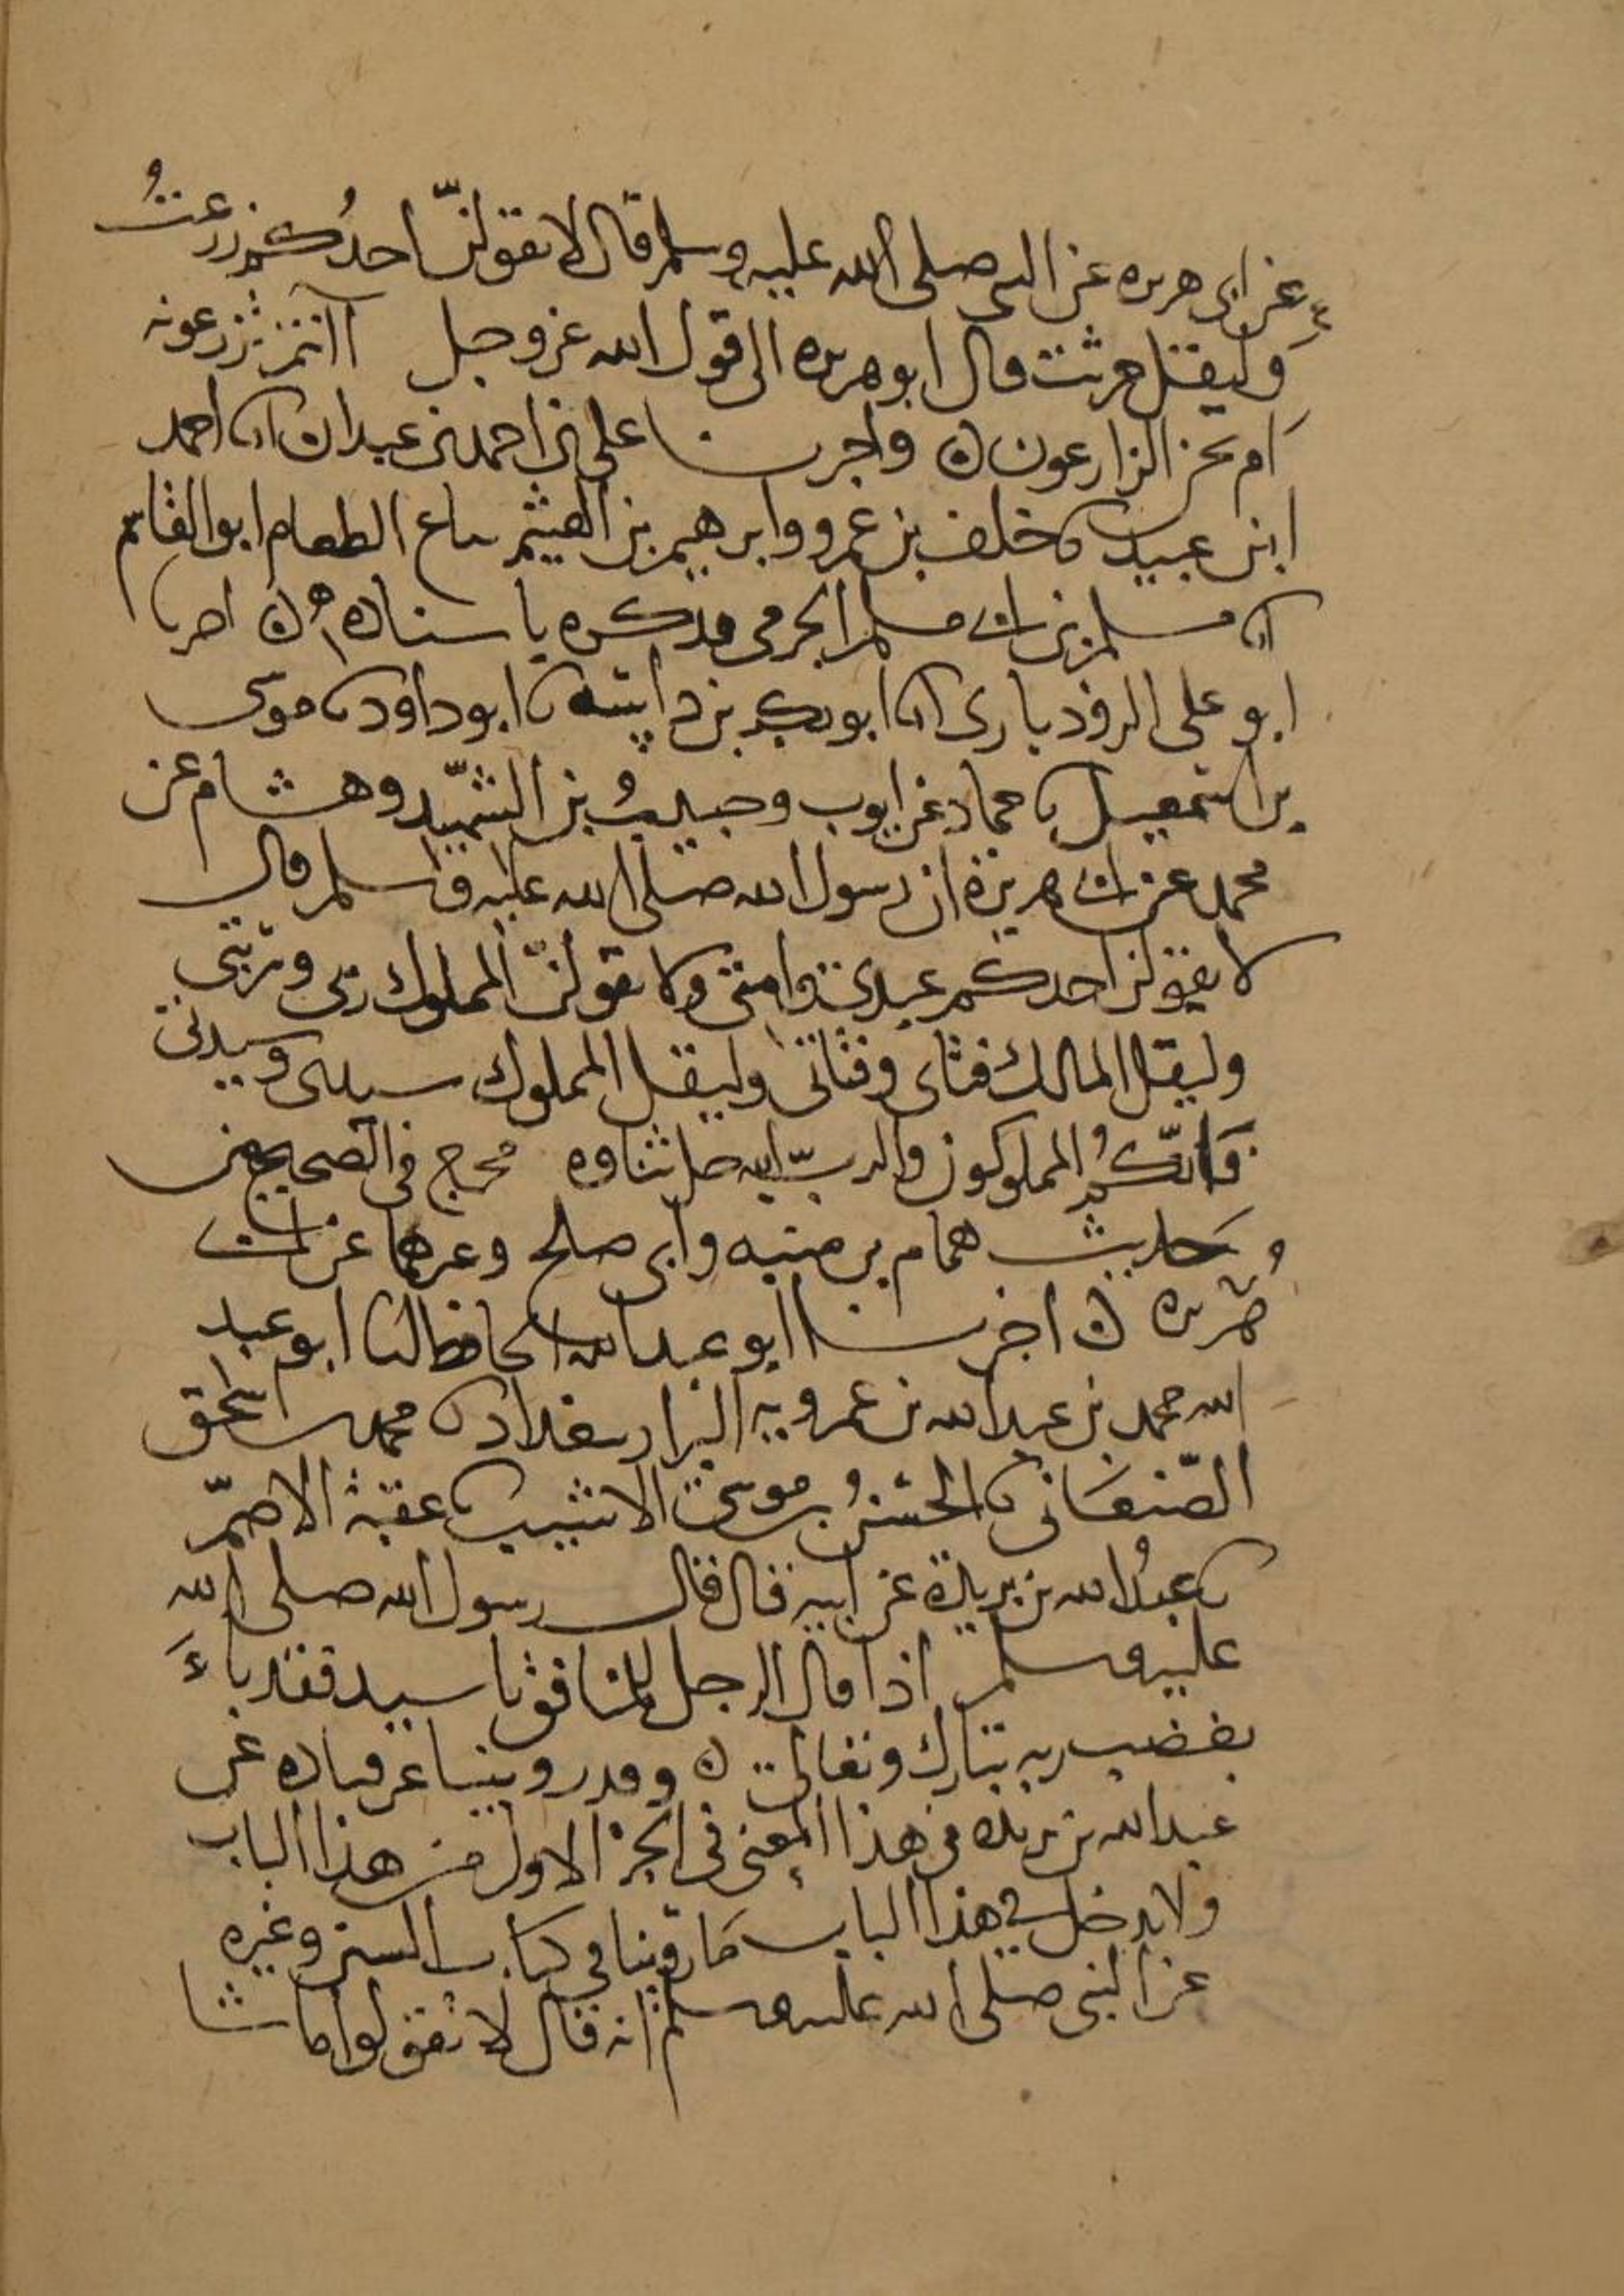 عن ابى هريره عن النبى صلى الله عليه وسلم قال لا يقولنّ احدُكم زرعتُ
وليقل حرثت قال ابو هريره الى قول الله عز وجل أانتم تزرعونه
ام نحن الزارعون ه واخبرنا على بن احمد بن عبدان انا احمد
ابن عبيد نا خلف بن عمرو وابرهيم بن الهيثم بياع الطعام ابو القاسم
نا مسلم بن ابى مسلم الجرمى فذكره باسناده ه اخبرنا
ابو على الروذبارى انا ابو بكر بن داسه نا ابو داود نا موسى
بن اسمعيل نا حماد عن ايوب وحبيبُ بن الشهيد وهشام عن
محمد عن ابى هريرة ان رسول الله صلى الله عليه وسلم قال
لا يقولن احدكم عبدى وامتى ولا يقولنّ المملوك ربى وربتى
وليقل المالك فتاى وفتاتى وليقل المملوك سيدى وسيدتى
فانّكمُ المملوكون والربّ الله جل ثناوه مخرج فى الصحيح من
حديث همام بن منبه وابى صلح وغيرهما عن ابى
هُريره ه اخبرنا ابو عبد الله الحافظ انا ابو عبد
الله محمد بن عبد الله بن عمرويه البزار ببغداد نا محمد بن اسحق
الصّنعانى نا الحسنُ بن موسى الاشيب نا عقبة الاصمّ
نا عبدُ الله بن بريدة عن ابيه قال قال رسول الله صلى الله
عليه وسلم اذا قال الرجل للمنافق يا سيد فقد باءَ
بغضب ربه تبارك وتعالى ه وقد روينا عن قتاده عن
عبد الله بن بريده فى هذا المعنى فى الجز الاول من هذا الباب
ولا يدخل فى هذا الباب ما روينا فى كتاب السنن وغيره
عن النبى صلى الله عليه وسلم انه قال لا تقولوا ما شا